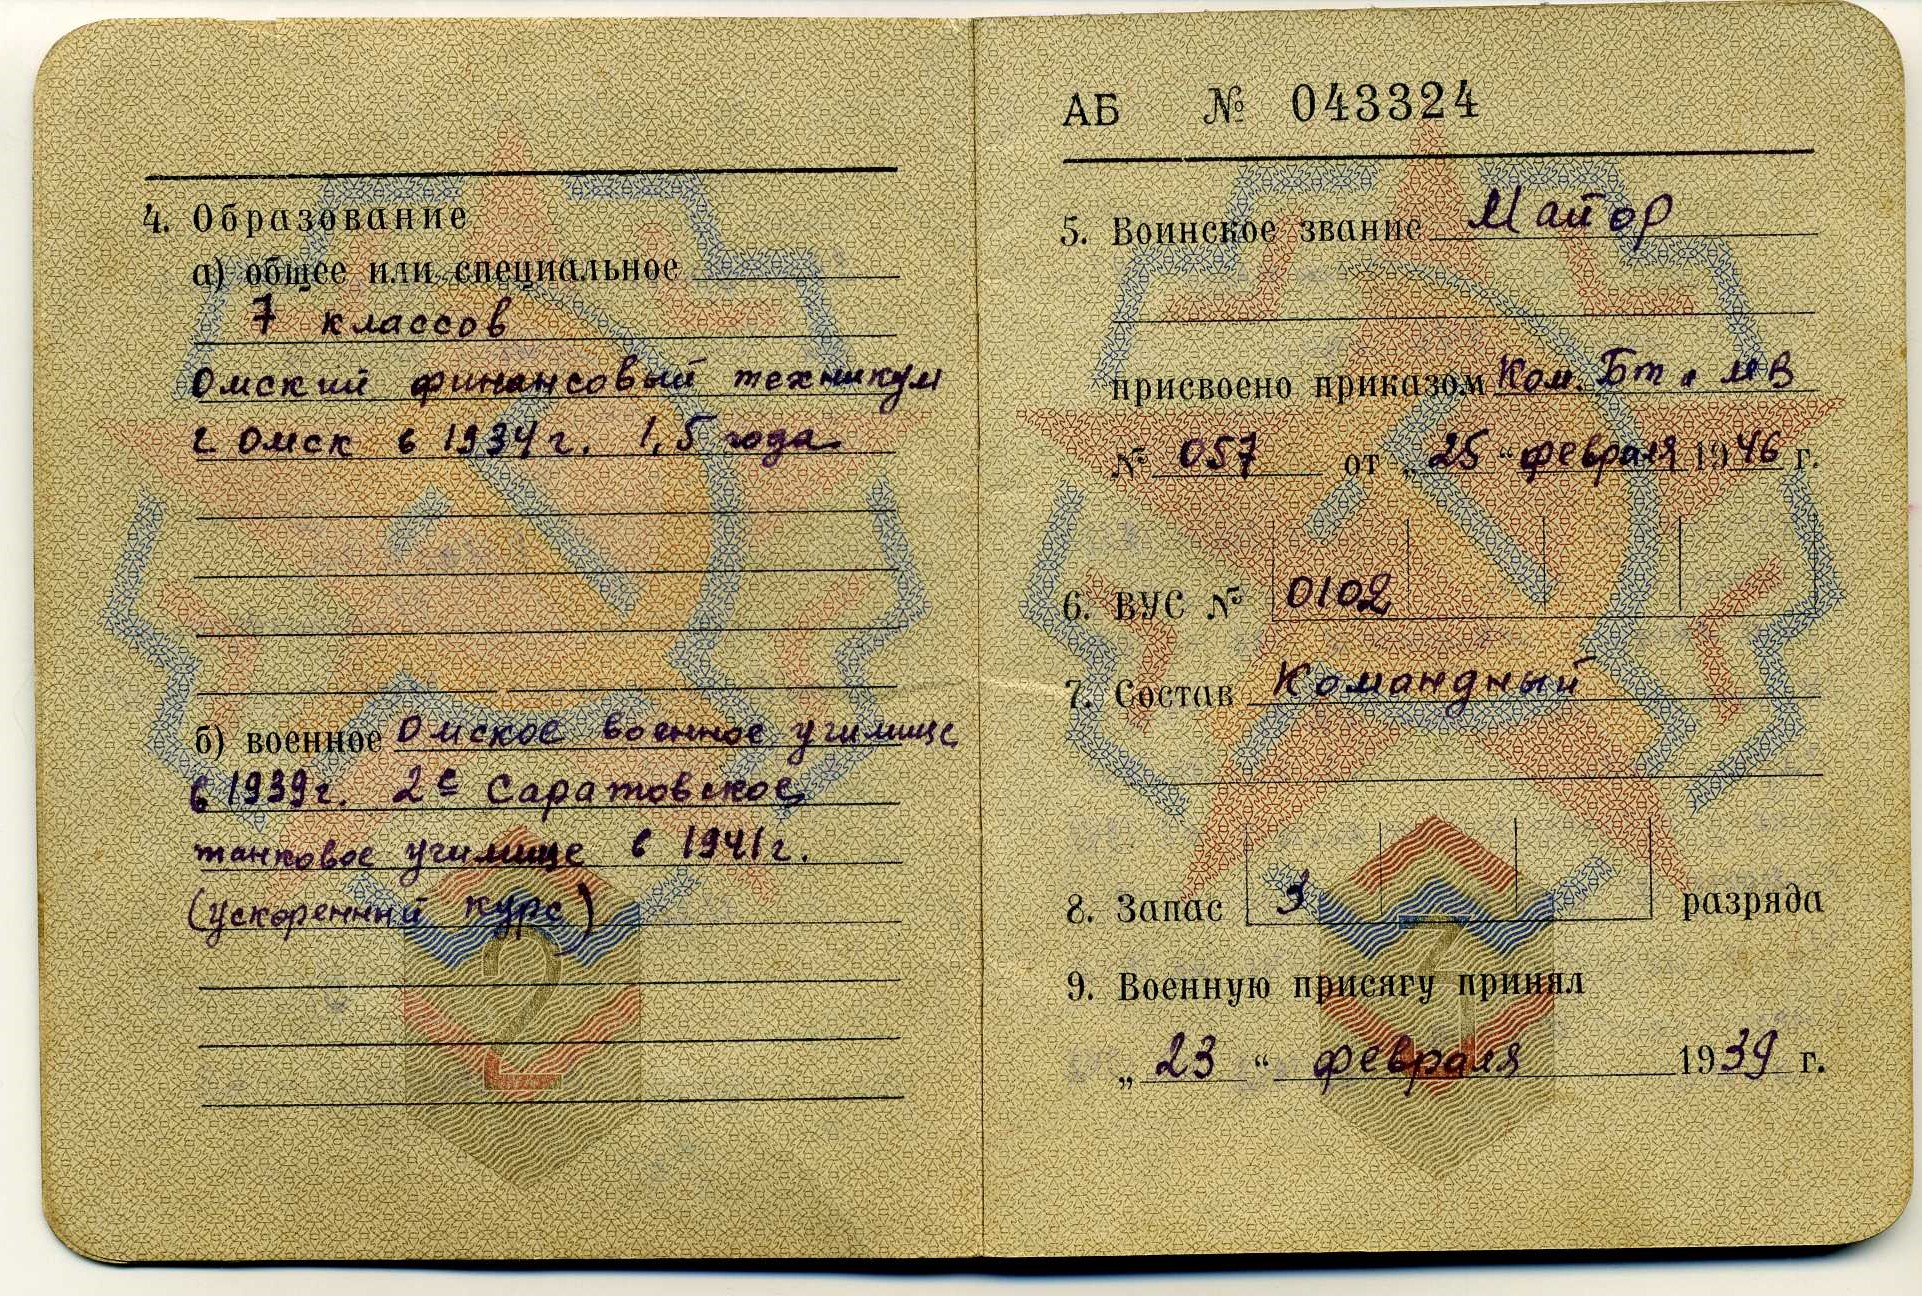 4. Образование
а) общее или специальное
7 классов
Омский финансовый техникум
г Омск в 1934г. 1,5 года
б) военное Омское военное училище
в 1939г. 2е Саратовское
танковое училище в 1941г.
(ускоренный курс)
2
АБ № 043324
5. Воинское звание Майор
присвоено приказом Ком. Бт и МВ
№ 057 от „25“ февраля 1946 г.
6. ВУС № 0102
7. Состав Командный
8. Запас 3 разряда
9. Военную присягу принял
„23“ февраля 1939 г.